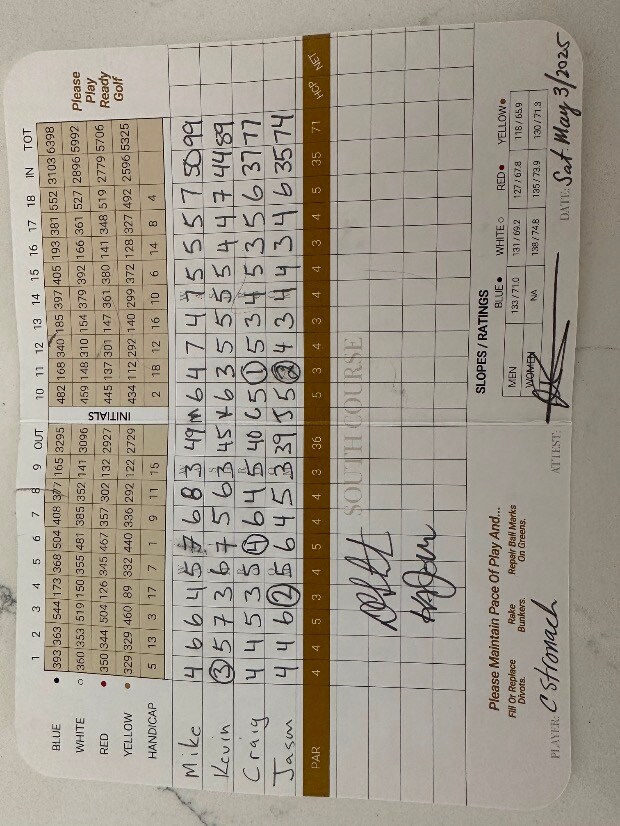 1 2 3 4 5 6 7 8 9 OUT 10 11 12 13 14 15 16 17 18 IN TOT
BLUE 393 363 544 173 368 504 408 377 165 3295 482 168 340 185 397 405 193 381 552 3103 6398
WHITE 360 353 519 150 355 481 385 352 141 3096 459 148 310 154 379 392 166 361 527 2896 5992
RED 350 344 504 126 345 467 357 302 132 2927 445 137 301 147 361 380 141 348 519 2779 5706
YELLOW 329 329 460 89 332 440 336 292 122 2729 434 112 292 140 299 372 128 327 492 2596 5325
HANDICAP 5 13 3 17 7 1 9 11 15 2 18 12 16 10 6 14 8 4
INITIALS
Please
Play
Ready
Golf
Mike 4 6 6 4 5 7 6 8 3 49 M 6 4 7 4 7 5 5 5 7 50 99
Kevin 3 5 7 3 6 7 5 6 3 45 K 6 3 5 5 5 5 4 4 7 44 89
Craig 4 4 5 3 5 4 6 4 5 40 C 5 1 5 3 4 5 3 5 6 37 77
Jason 4 4 6 2 5 6 4 5 3 39 J 5 2 4 3 4 4 3 4 6 35 74
PAR 4 4 5 3 4 5 4 4 3 36 5 3 4 3 4 4 3 4 5 35 71 HCP NET
SOUTH COURSE
Please Maintain Pace Of Play And...
Fill Or Replace Divots.
Rake Bunkers.
Repair Ball Marks On Greens.
SLOPES / RATINGS
BLUE WHITE RED YELLOW
MEN 133 / 71.0 131 / 69.2 127 / 67.8 118 / 65.9
WOMEN NA 138 / 74.8 135 / 73.9 130 / 71.3
PLAYER: C Stronach
ATTEST:
DATE: Sat. May 3/2025